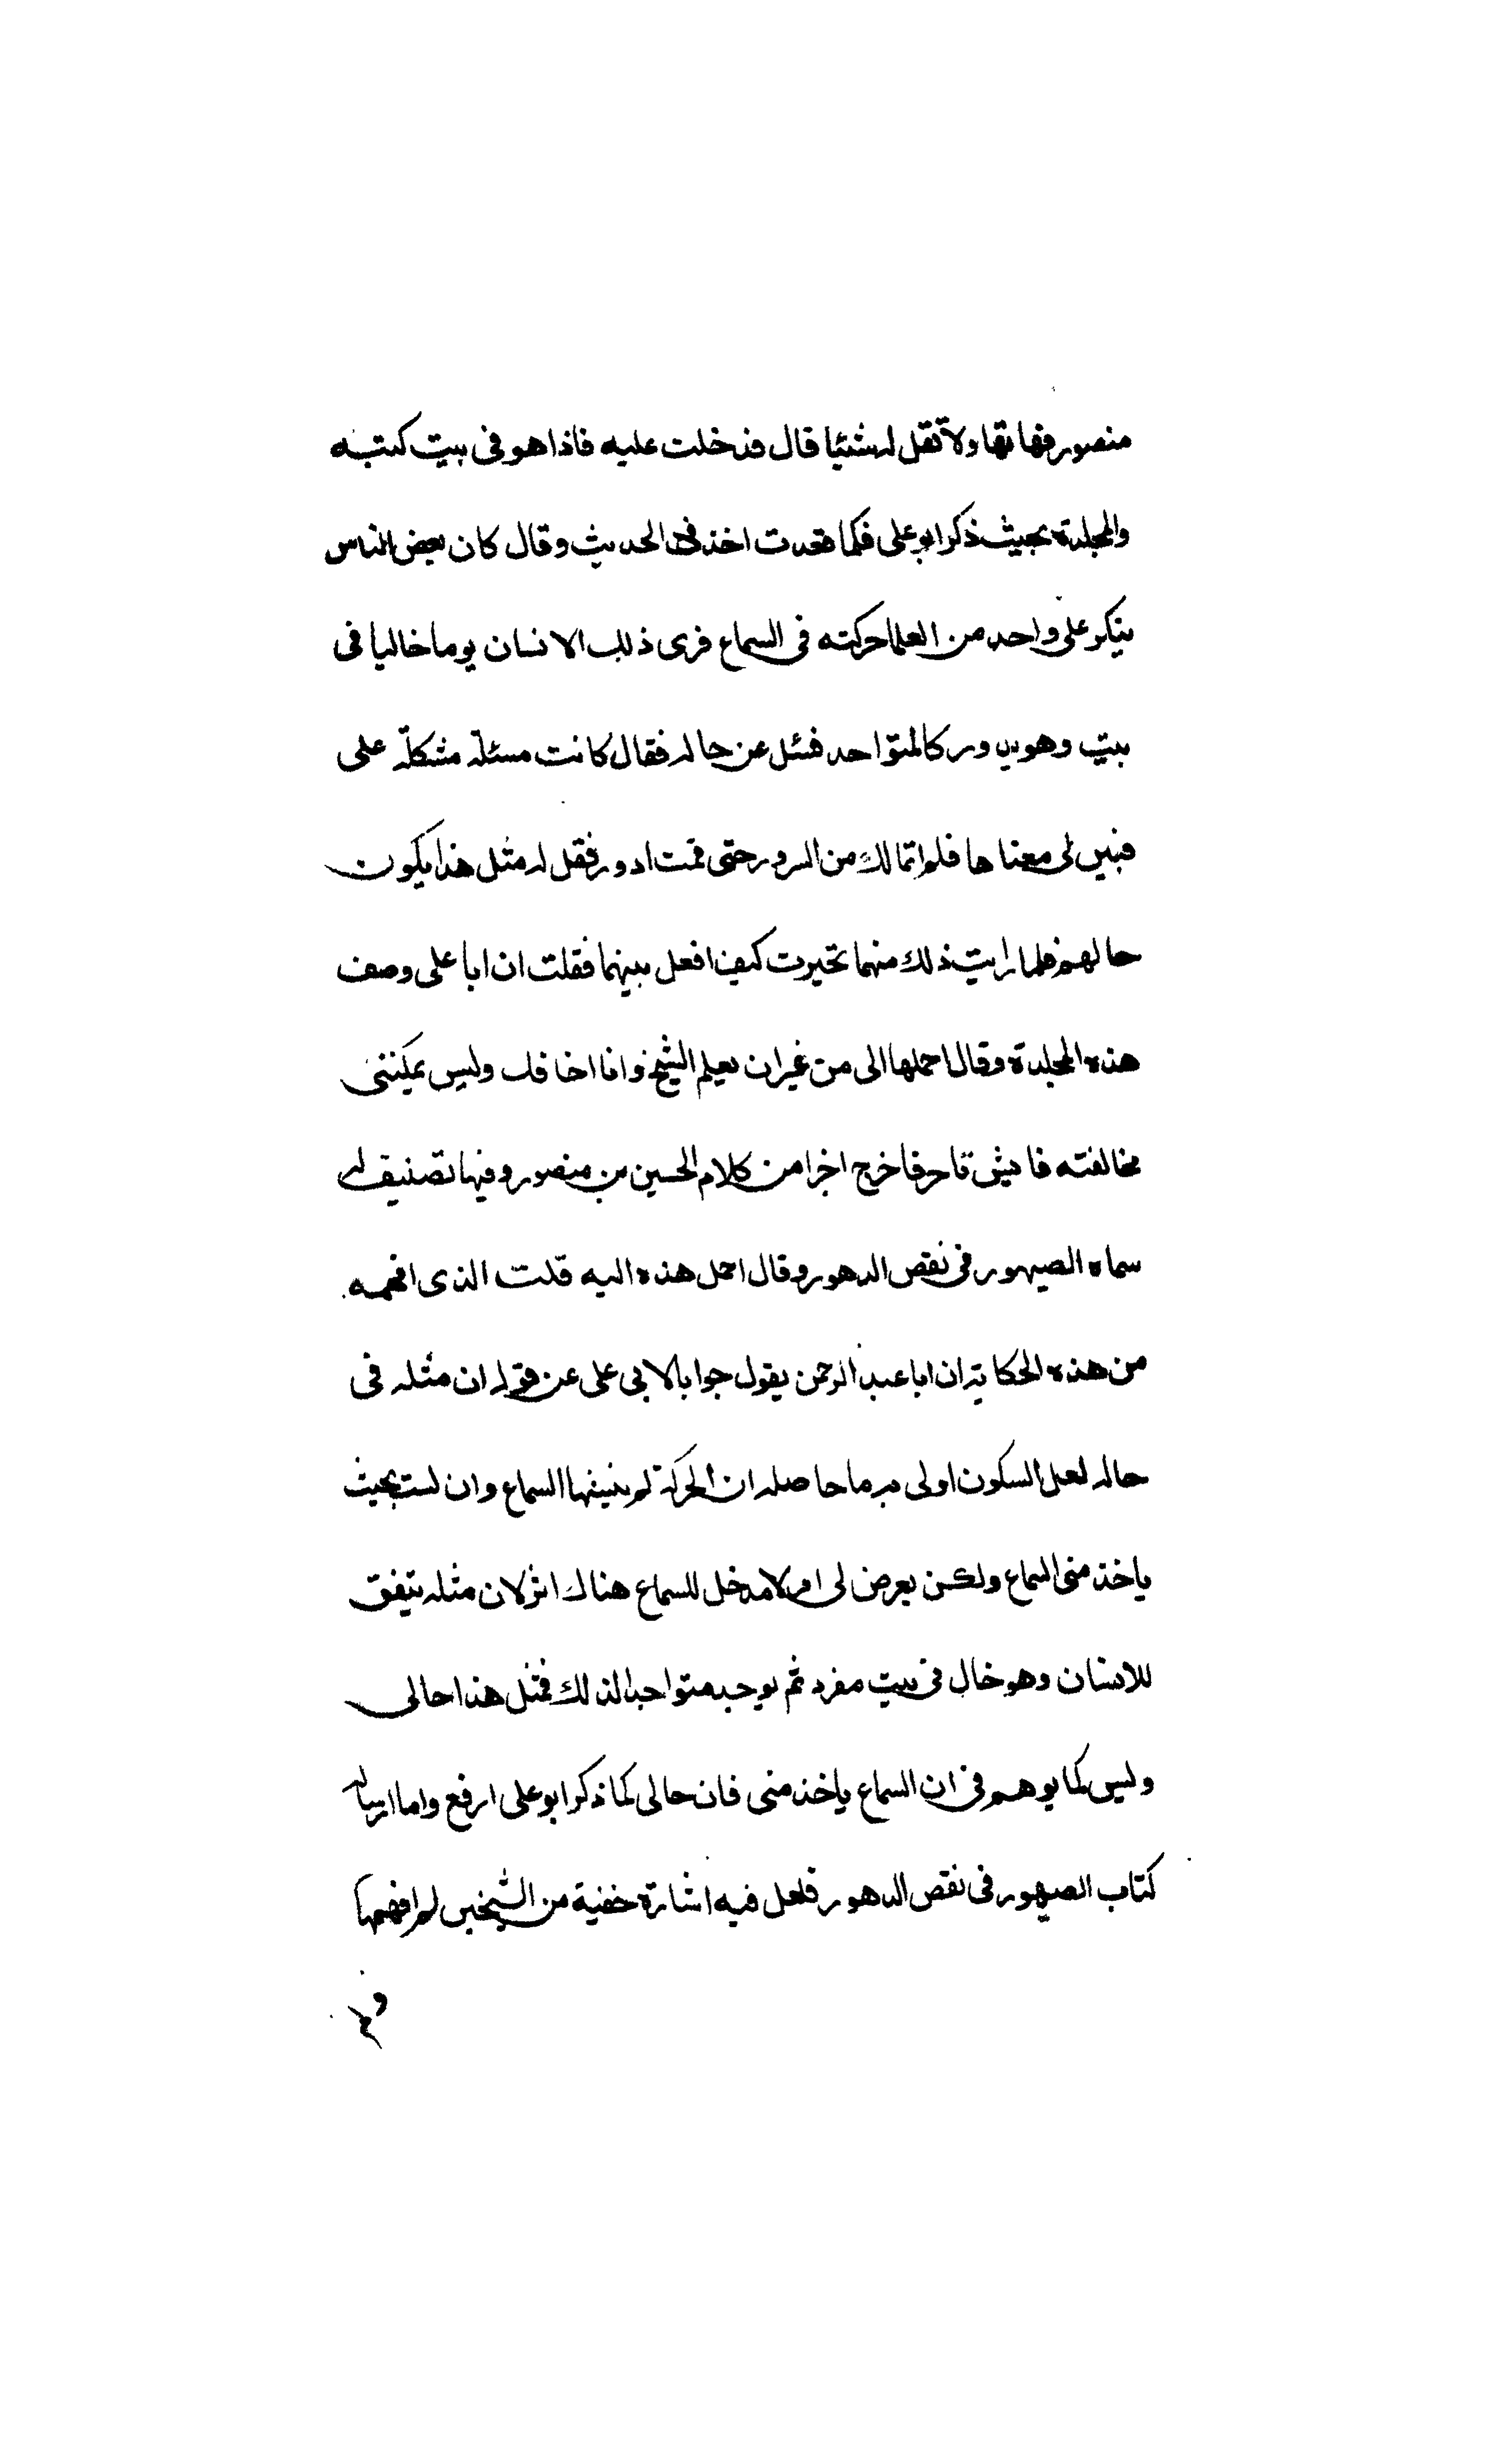 منصور فهاتها ولا تقل له شيئا قال فدخلت عليه فاذا هو في بيت كتبه
والمجلدة بحيث ذكر ابو علي فلما قعدت اخذ في الحديث وقال كان بعض الناس
ينكر على واحد من العلما حركته في السماع فرى ذلك الانسان يوما خاليا في
بيت وهو يدور كالمتواجد فسئل عن حاله فقال كانت مسئلة مشكلة على
فتبين لي معناها فلم اتمالك من السرور حتى قمت ادور فقل له مثل هذا يكون
حالهم فلما رايت ذلك منهما تحيرت كيف افعل بينهما فقلت ان ابا على وصف
هذه المجلدة وقال احملها الى من غير ان يعلم الشيخ وانا اخافك وليس يمكنني
مخالفته فايش تامر فاخرج اجزا من كلام الحسين بن منصور وفيها تصنيف له
سماه الصيهور في نقص الدهور وقال احمل هذه اليه قلت الذى افهمه
من هذه الحكاية ان ابا عبد الرحمن يقول جوابا لابي على عن قوله ان مثله في
حاله لعل السكون اولى به ما حاصله ان الحركة لم ينيفها السماع وان لست بحيث
ياخذ منى السماع ولكن يعرض لى امر لا مدخل للسماع هناك اثر لان مثله يتفق
للانسان وهو خال في بيت مفرد ثم يوجد متواجدا لذلك فمثل هذا حالى
وليس كما يوهم في ان السماع ياخذ منى فان حالى كما ذكر ابو على ارفع واما ارساله
كتاب الصيهور في نقص الدهور فلعل فيه اشارة خفية من الشيخين لم افهمها